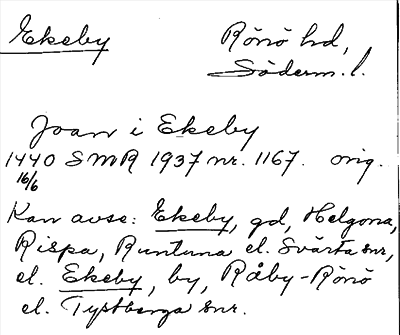 Ekeby
Rönö hd,
Söderm. l.
Joan i Ekeby
1440 SMR 1937 nr. 1167. orig.
16/6
Kan avse: Ekeby, gd, Helgona,
Rispa, Runtuna el. Svärta snr,
el. Ekeby, by, Råby-Rönö
el. Tystberga snr.